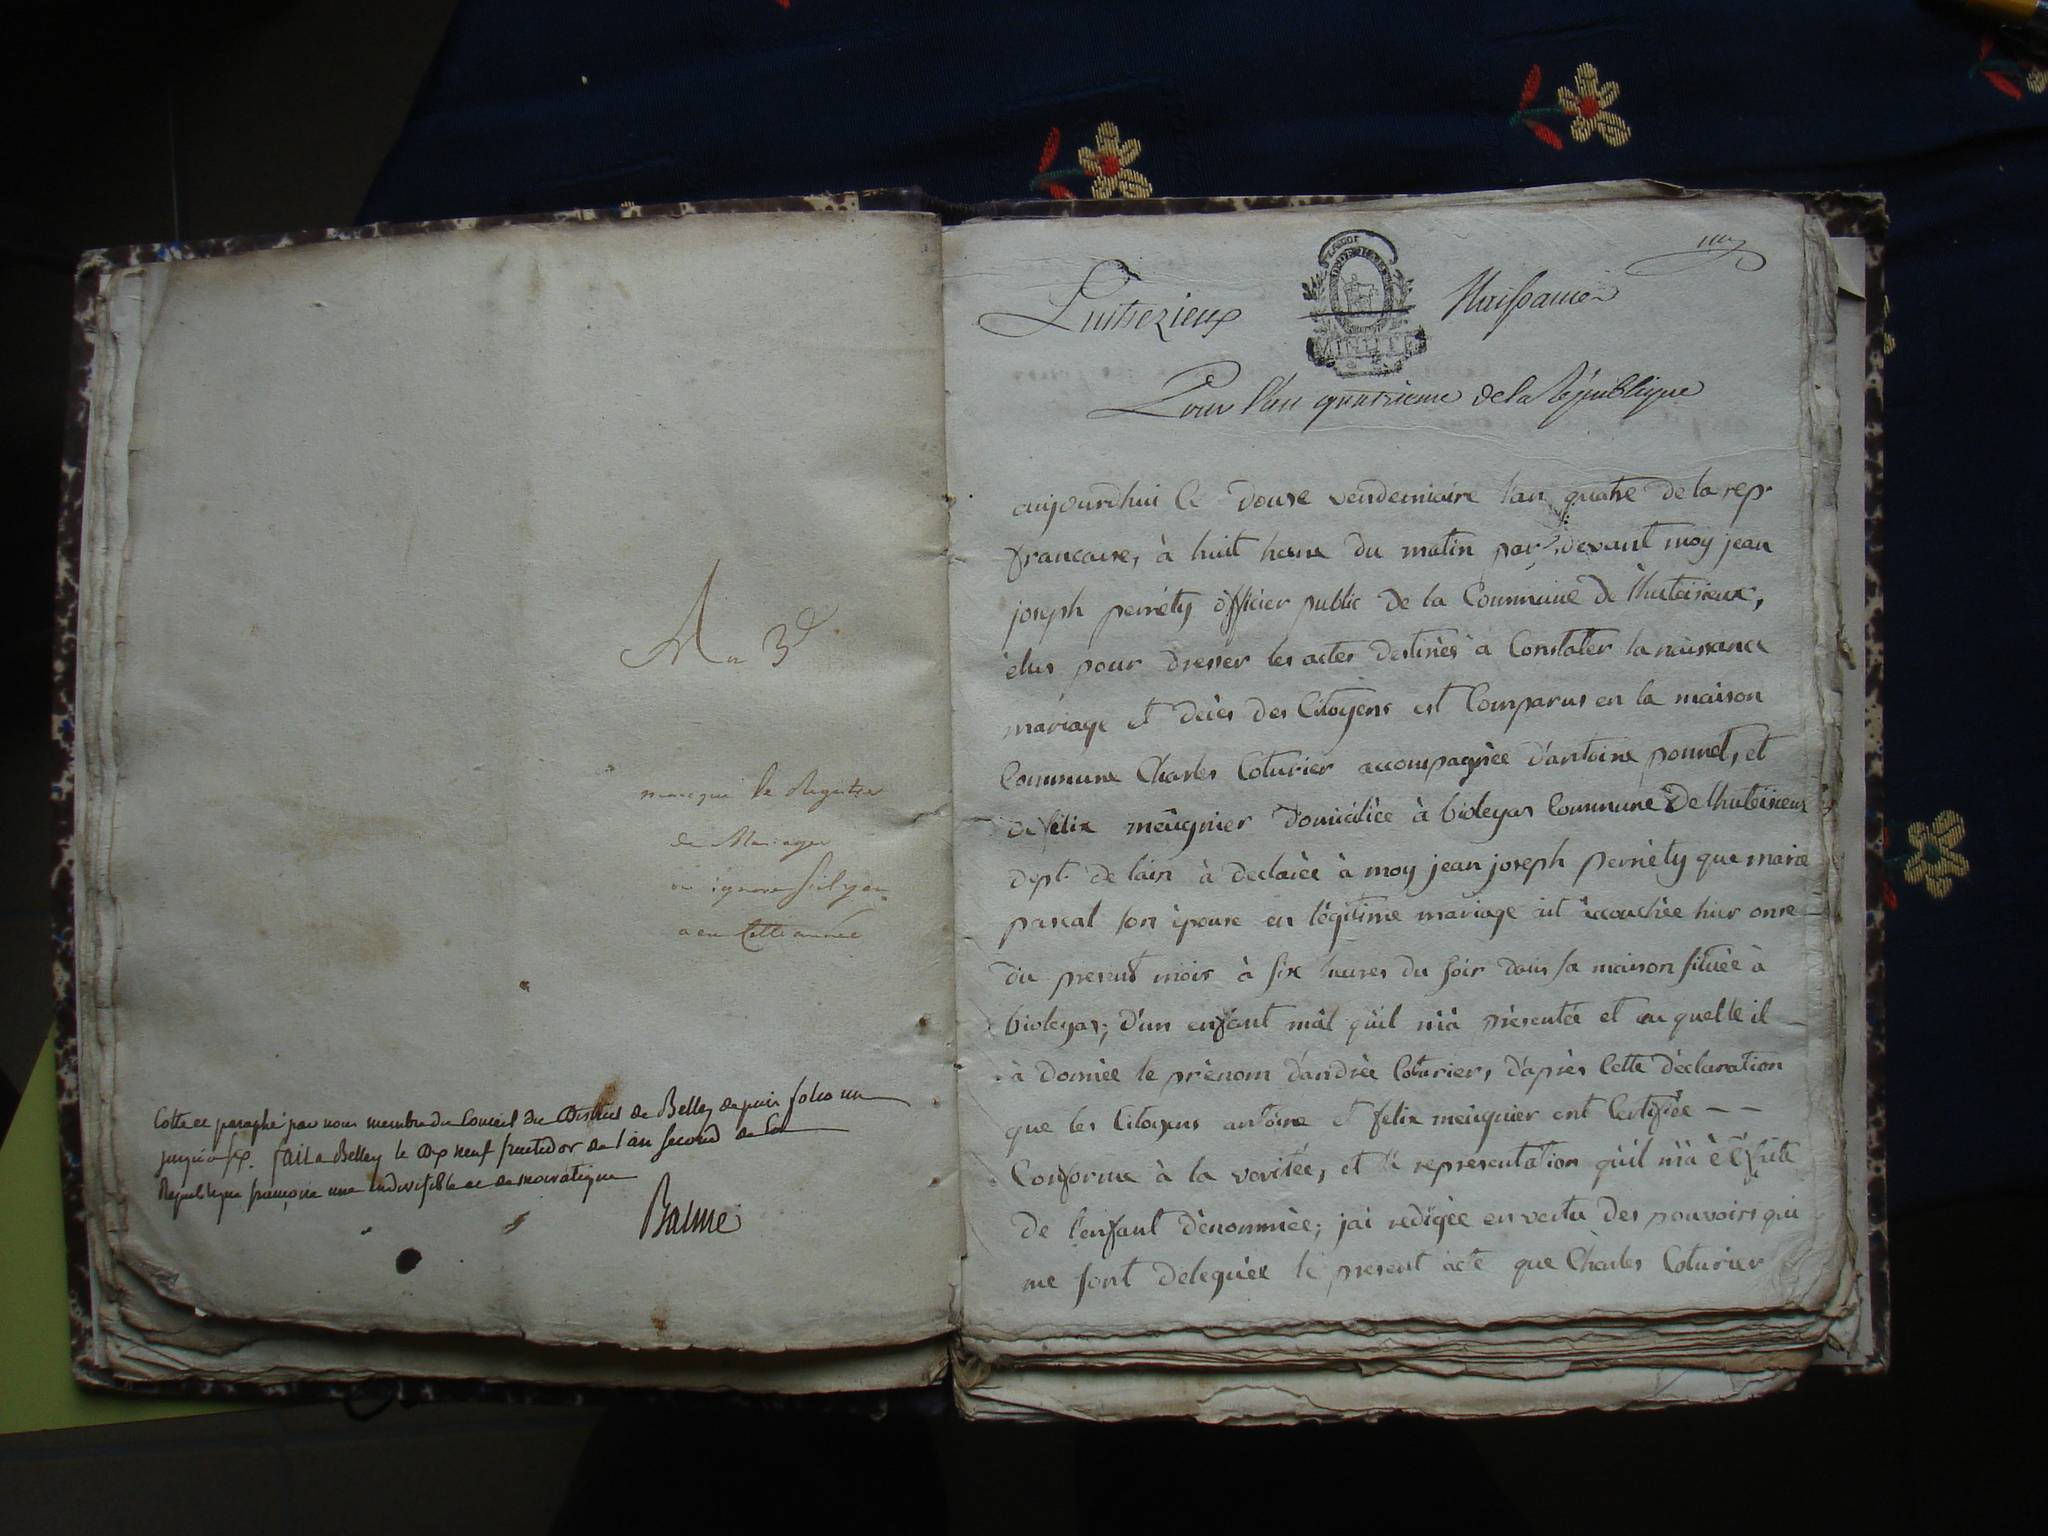 An 3e
manque le Registre
de Mariages
on ignore s'il y en
a eu cette année
Cotté et paraphé par nous membre du Conseil du District de Belley depuis folio un
jusqu'à six. fait à Belley le dix neuf fructidor de l'an second de la
République françoise une indivisible et démocratique
Balme
Luthezieux
Naissance
Pour l'an quatrieme de la République
aujourdhui le douse vendemiaire l'an quatre de la rep.
francaise, à huit heure du matin par devant moy jean
joseph perréty officier public de la Commune de
élus pour dresser les actes destinés à Constater la naissance
mariage et décès des Citoyens est Comparus en la maison
Commune Charles Coturier accompagnée d'antoine ponnet, et
de félix meûgnier domiciliée à bioleyas Commune De
dept. de lain à declarée à moy jean joseph perréty que marie
pascal son épouse en légitime mariage est accouchée hier onse
du present mois à six heures du soir dans sa maison située à
bioleyas; d'un enfant mâl qu'il m'à présentée et au quelle il
à donnée le prénom d'andrée Coturier, d'après cette déclaration
que les Citoyens antoine et felix meuguier ont Certifiée - -
Conforme à la veritée, et la representation qu'il m'à été faite
de l'enfant dénommée; jai redigée en vertu des pouvoirs qui
me sont deleguées le present acte que Charles Coturier